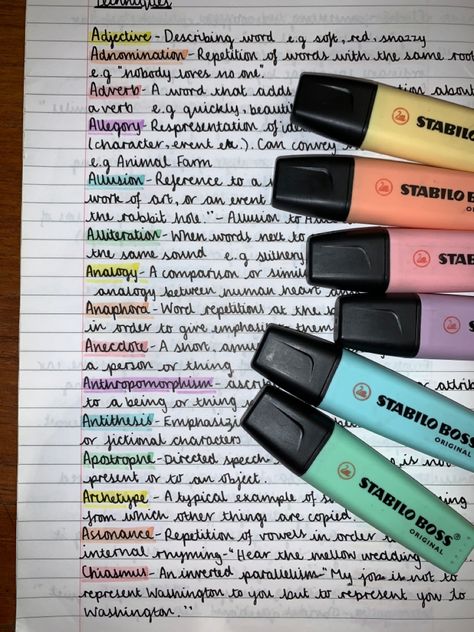 Techniques
Adjective - Describing word e.g soft, red, snazzy
Adnomination - Repetition of words with the same root
e.g "nobody loves no one".
Adverb - A word that adds about
a verb e.g quickly,
Allegory - Respresentation of
(character, event etc.). Can convey
e.g Animal Farm
Allusion - Reference to a
work of art, or an event
the rabbit hole." - Allusion to
Alliteration - When words next to
the same sound e.g slithery
Analogy - A comparison or
analogy between human heart
Anaphora - Word repetitions at the
in order to give emphasis to them
Anecdote - A short,
a person or thing
Anthropomorphism -
to a being or thing
Antithesis -
or fictional characters
Apostrophe - Directed speech is not
present or to an object.
Archetype - A typical example of
from which other things are copied
Assonance - Repetition of vowels in order to
internal rhyming - "Hear the mellow wedding
Chiasmus - An inverted parallelism "My job is not to
represent Washington to you but to represent you to
Washington."
STABILO
STABILO
ORIGINAL
STABILO
STABILO BOSS
ORIGINAL
STABILO BOSS
ORIGINAL